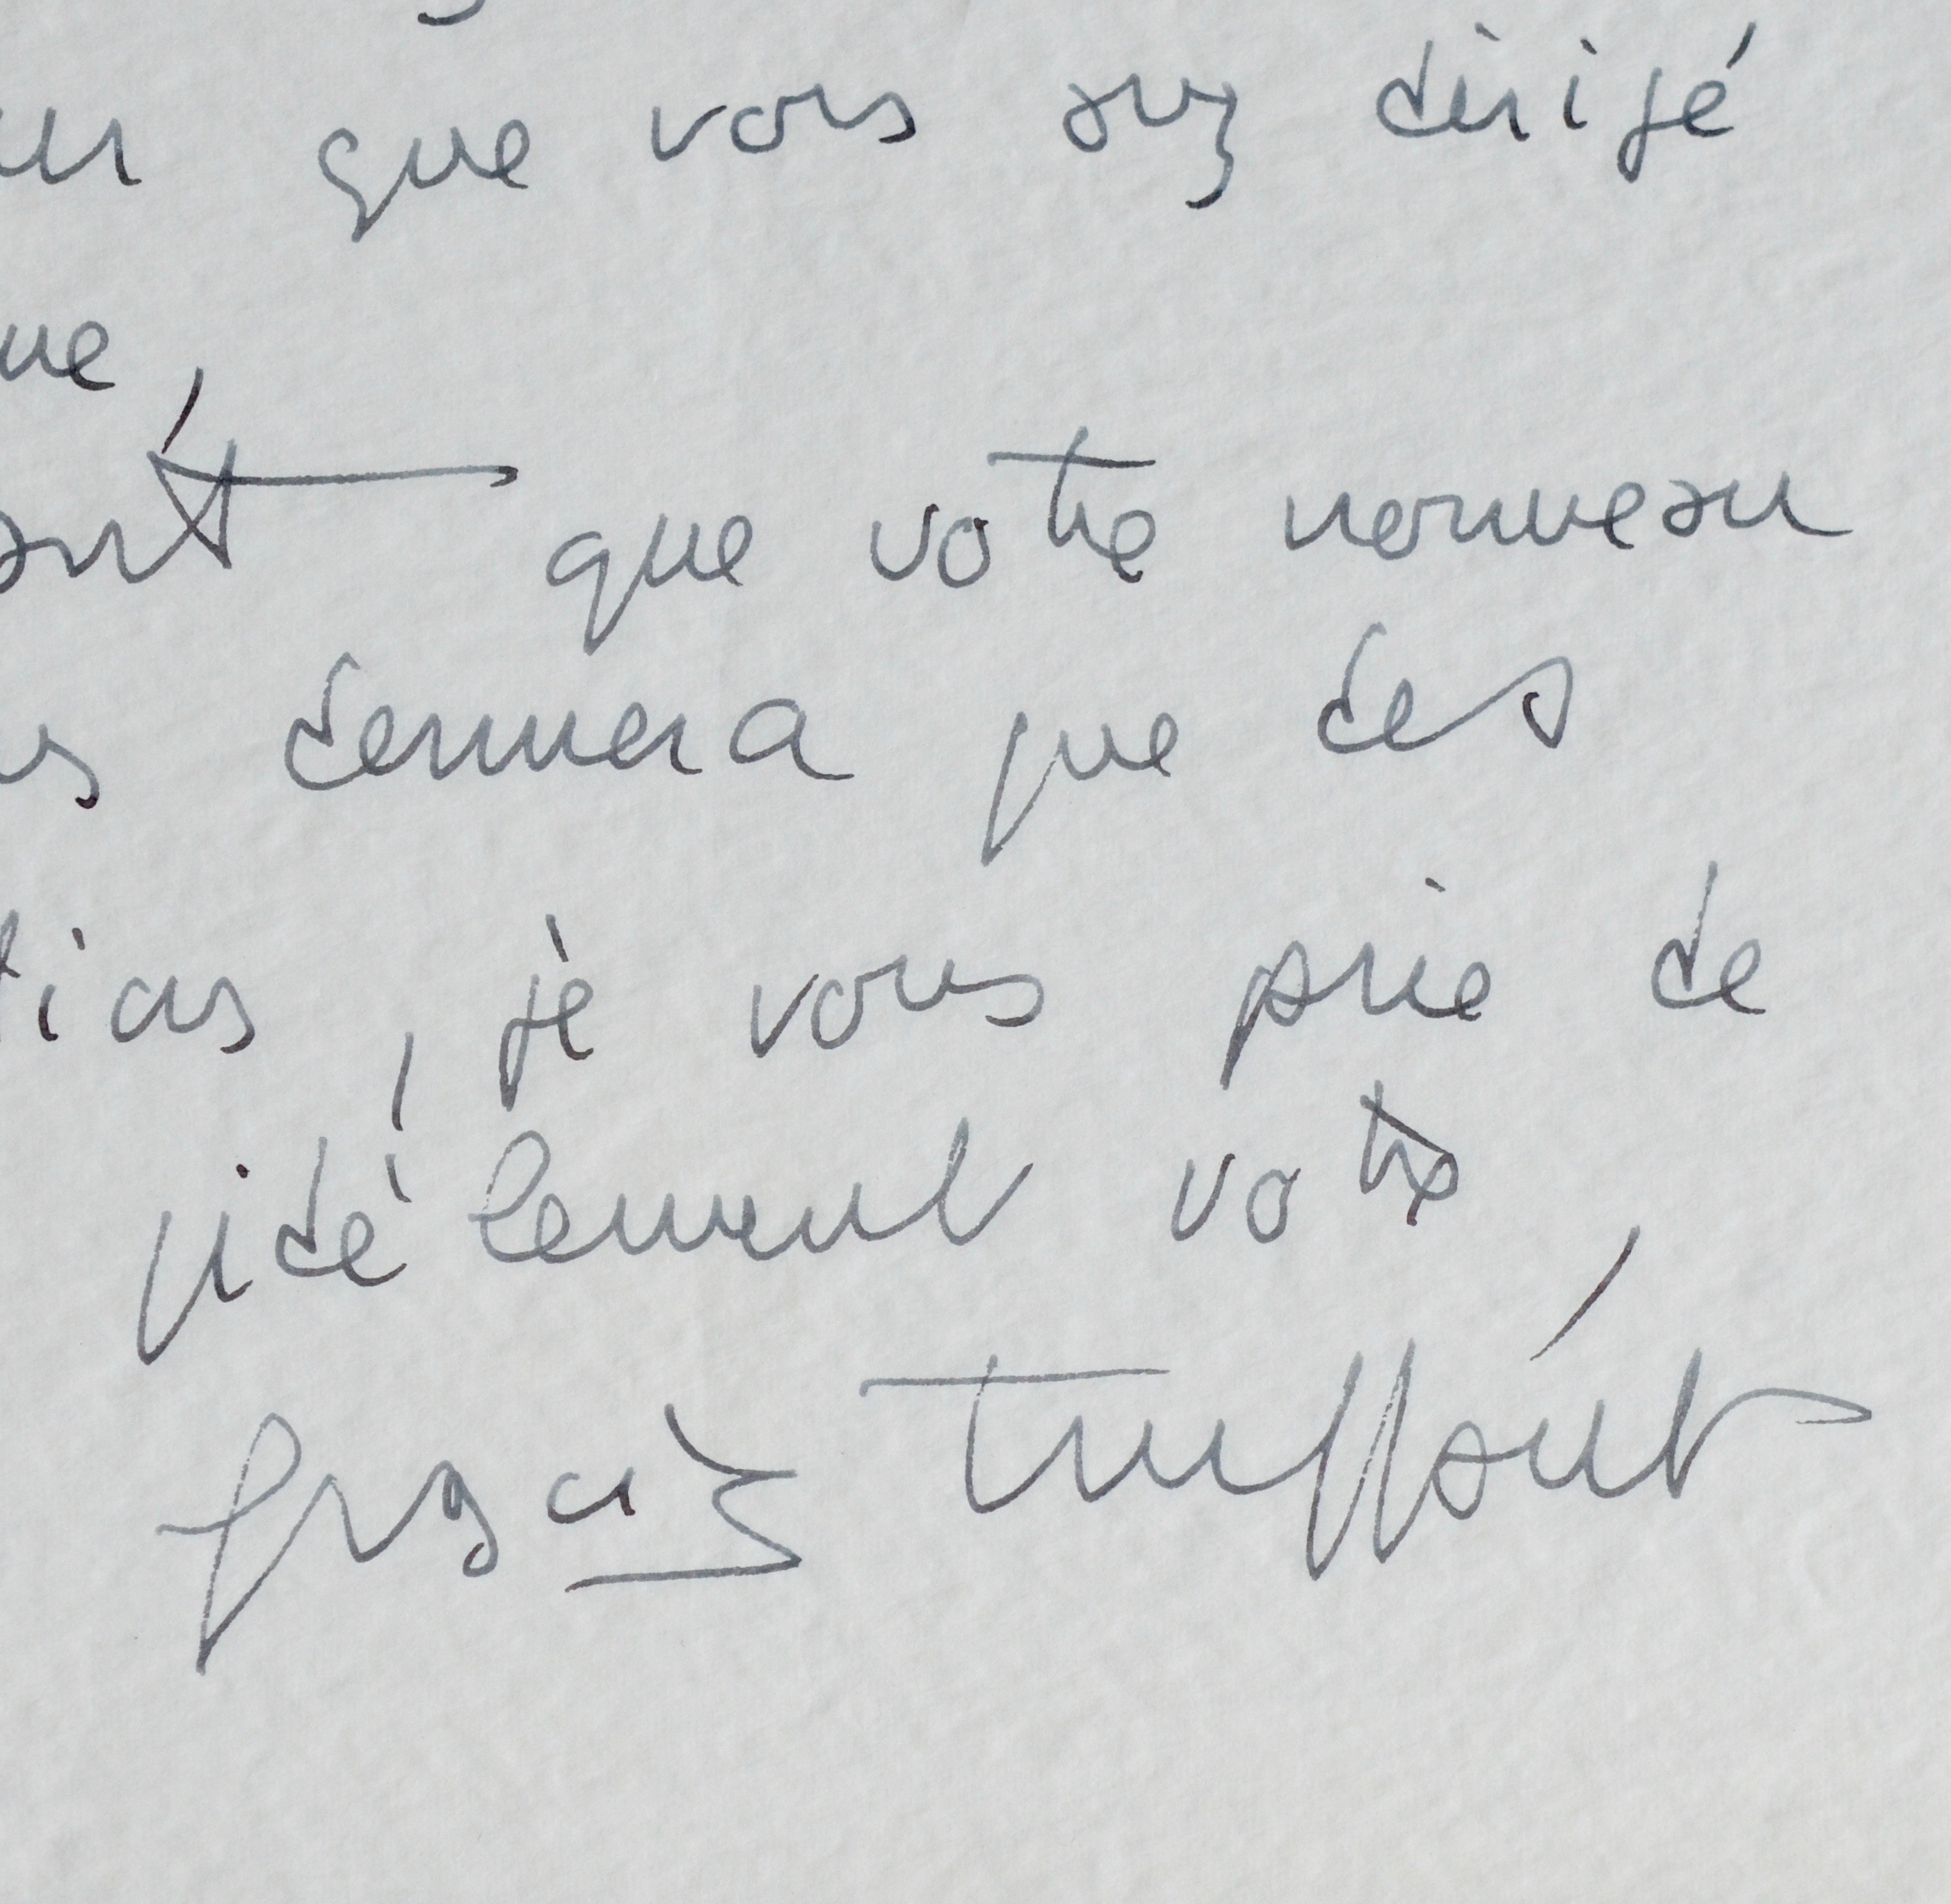 que vous avez dirigé
que votre nouveau
donnera que des
, je vous prie de
fidèlement votre,
françois truffaut